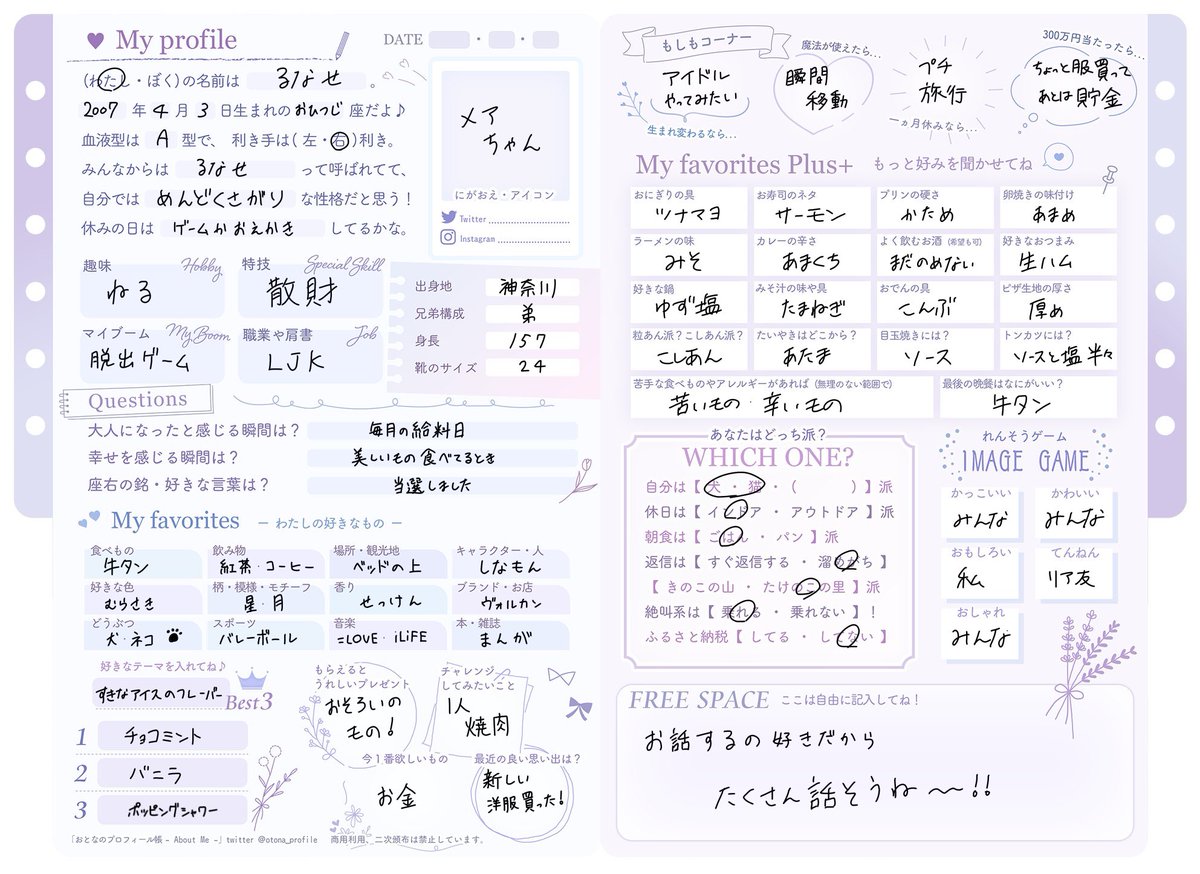 My profile
DATE ・ ・
(わたし・ぼく)の名前は るなせ 。
2007 年 4 月 3 日生まれの おひつじ 座だよ♪
血液型は A 型で、 利き手は( 左・右 )利き。
みんなからは るなせ って呼ばれてて、
自分では めんどくさがり な性格だと思う！
休みの日は ゲームかおえかき してるかな。
メア
ちゃん
にがおえ・アイコン
Twitter
Instagram
趣味 Hobby
ねる
特技 Special Skill
散財
マイブーム My Boom
脱出ゲーム
職業や肩書 Job
LJK
出身地 神奈川
兄弟構成 弟
身長 157
靴のサイズ 24
Questions
大人になったと感じる瞬間は？ 毎月の給料日
幸せを感じる瞬間は？ 美しいもの食べてるとき
座右の銘・好きな言葉は？ 当選しました
My favorites ― わたしの好きなもの ―
食べもの 飲み物 場所・観光地 キャラクター・人
牛タン 紅茶・コーヒー ベッドの上 しなもん
好きな色 柄・模様・モチーフ 香り ブランド・お店
むらさき 星・月 せっけん ヴォルカン
どうぶつ スポーツ 音楽 本・雑誌
犬・ネコ バレーボール =LOVE・iLiFE まんが
好きなテーマを入れてね♪
すきなアイスのフレーバー
Best3
1 チョコミント
2 バニラ
3 ポッピングシャワー
もらえると
うれしいプレゼント
おそろいの
もの！
チャレンジ
してみたいこと
1人
焼肉
今1番欲しいもの
お金
最近の良い思い出は？
新しい
洋服買った！
「おとなのプロフィール帳 - About Me -」twitter @otona_profile 商用利用、二次頒布は禁止しています。
もしもコーナー
アイドル
やってみたい
生まれ変わるなら…
魔法が使えたら…
瞬間
移動
プチ
旅行
一ヵ月休みなら…
300万円当たったら…
ちょっと服買って
あとは貯金
My favorites Plus+ もっと好みを聞かせてね
おにぎりの具 お寿司のネタ プリンの硬さ 卵焼きの味付け
ツナマヨ サーモン かため あまめ
ラーメンの味 カレーの辛さ よく飲むお酒 (希望も可) 好きなおつまみ
みそ あまくち まだのめない 生ハム
好きな鍋 みそ汁の味や具 おでんの具 ピザ生地の厚さ
ゆず塩 たまねぎ こんぶ 厚め
粒あん派？こしあん派？ たいやきはどこから？ 目玉焼きには？ トンカツには？
こしあん あたま ソース ソースと塩 半々
苦手な食べものやアレルギーがあれば (無理のない範囲で) 最後の晩餐はなにがいい？
苦いもの・辛いもの 牛タン
あなたはどっち派？
WHICH ONE?
自分は【 犬 ・ 猫 ・ ( ) 】派
休日は【 インドア ・ アウトドア 】派
朝食は【 ごはん ・ パン 】派
返信は【 すぐ返信する ・ 溜めがち 】
【 きのこの山 ・ たけのこの里 】派
絶叫系は【 乗れる ・ 乗れない 】！
ふるさと納税【 してる ・ してない 】
れんそうゲーム
IMAGE GAME
かっこいい かわいい
みんな みんな
おもしろい てんねん
私 リア友
おしゃれ
みんな
FREE SPACE ここは自由に記入してね！
お話するの好きだから
たくさん話そうね〜!!